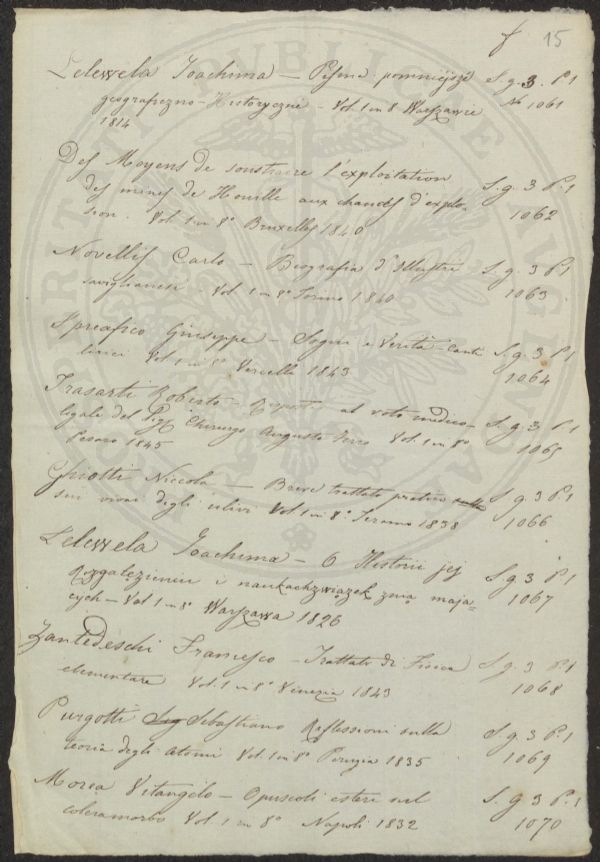 f 15
Lelewela Joachima — Pisma pomniejsze S. g. 3. P. 1
geograficzno-Historyczne - Vol. 1 in 8° Warszawie N° 1061
1814
Des Moyens de soustraire l'exploitation S. g. 3 P. 1
des mines de Houille aux chances d'explo-
sion. Vol. 1 in 8° Bruxelles 1840 1062
Novellis Carlo — Biografia d'Illustri S. g. 3 P. 1
saviglianesi - Vol. 1 in 8° Torino 1840 1063
Spreafico Giuseppe — Sogni e Verità - Canti S. g. 3 P. 1
lirici Vol. 1 in 8° Vercelli 1843 1064
Trasarti Roberto — al voto medico- S. g. 3 P. 1
legale del Chirurgo Augusto Vol. 1 in 8° 1065
Pesaro 1845
Ghiotti Niccola — Breve trattato pratico sulle S. g. 3 P. 1
degli ulivi Vol. 1 in 8° Teramo 1838 1066
Lelewela Joachima — O Historii jej S. g. 3 P. 1
rozgałęzieniu i naukach związek z nią mają- 1067
cych — Vol. 1 in 8° Warszawa 1826
Zantedeschi Francesco — Trattato di Fisica S. g. 3 P. 1
elementare Vol. 1 in 8° Venezia 1843 1068
Purgotti Sebastiano Riflessioni sulla S. g. 3 P. 1
teoria degli atomi Vol. 1 in 8° Perugia 1835 1069
Morea Vitangelo — Opuscoli esteri sul S. g. 3 P. 1
coleramorbo Vol. 1 in 8° Napoli 1832 1070